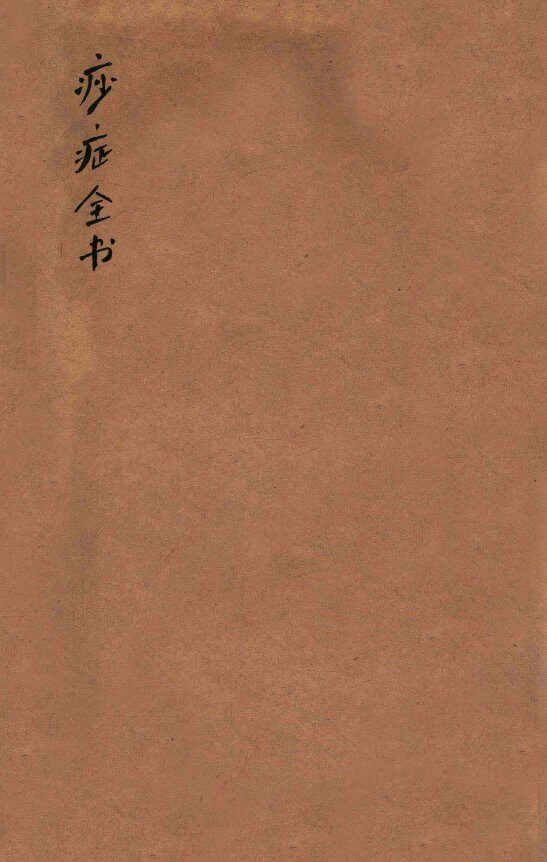 痧症全书